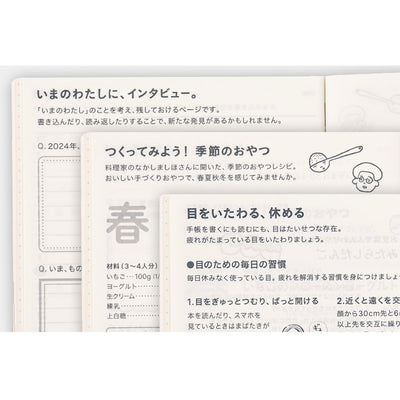 いまのわたしに、インタビュー。
「いまのわたし」のことを考え、残しておけるページです。
書き込んだり、読み返したりすることで、新たな発見があるかもしれません。
Q. 2024年、
Q. いま、もの
つくってみよう! 季節のおやつ
料理家のなかしましほさんに聞いた、季節のおやつレシピ。
おいしい手づくりおやつで、春夏秋冬を感じてみませんか。
春
材料(3〜4人分)
いちご……100g
ヨーグルト
生クリーム
練乳
上白糖
目をいたわる、休める
手帳を書くにも読むにも、目はたいせつな存在。
疲れがたまっている目をいたわりましょう。
●目のための毎日の習慣
毎日休みなく使っている目。疲れを解消する習慣を身につけましょ
1.目をぎゅっとつむり、ぱっと開ける
本を読んだり、スマホを
見ているときはまばたきが
2.近くと遠くを交
顔から30cm先と6
以上先を交互に繰り